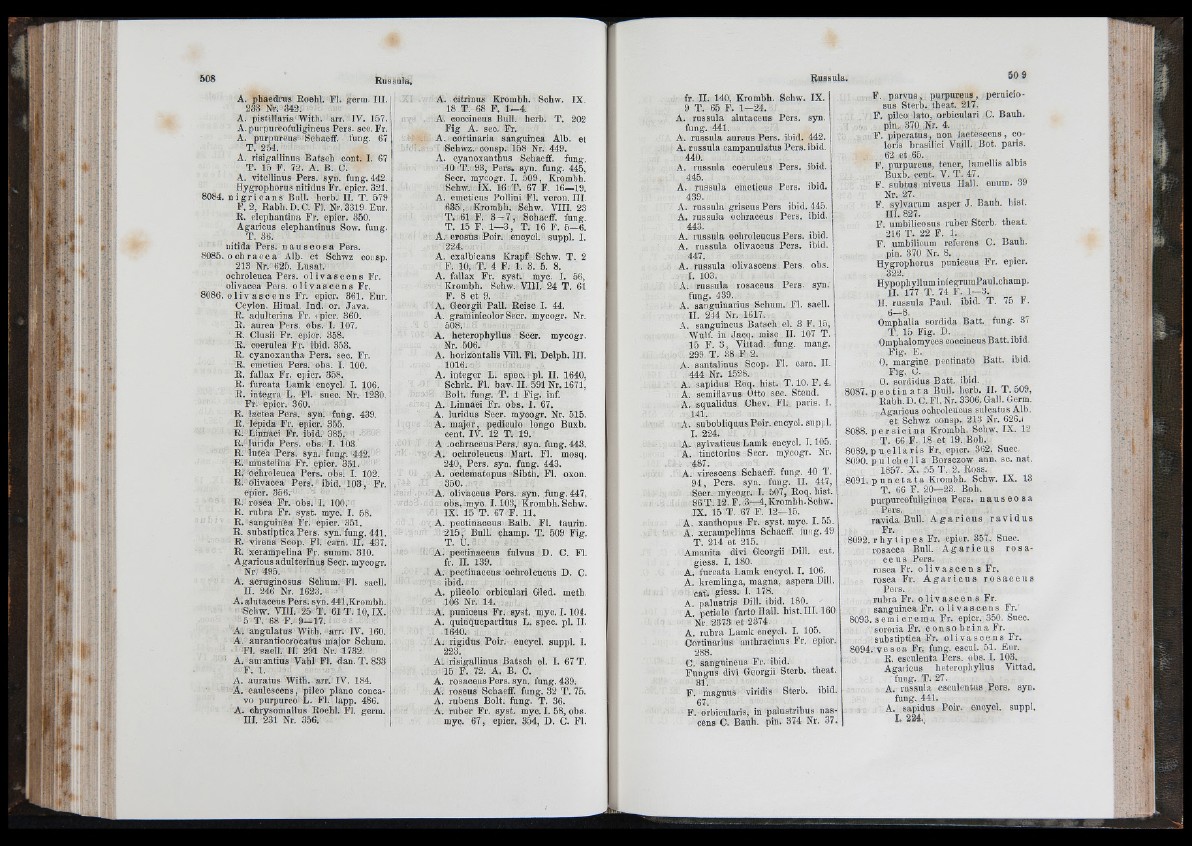 508
Russula.
A. phaedrus Roehl. Fl. germ. III.
233 Nr. 342.
A. pistillaris With. arr. IV. 157.
A. purpureofuligineus Pers. sec. Fr.
A. purpureus Schaeff. fung. 67
T. 254.
A. risigallinus Batsch cont. I. 67
T. 15 F. 72. A. B. C.
A. vitellinus Pers. syn. fung. 442
Hygrophorus nitidus Fr. epicr. 324.
8084. nigricans Bull. herb. II. T. 579
F. 2. Rabh. D. C. Fl. Nr. 3319. Eur.
R. elephantina Fr. epicr. 350.
Agaricus elephantinus Sow. fung.
T. 36.
nitida Pers. nauseosa Pers.
8085. ochracea Alb. et Schwz consp.
213 Nr. 625. Lusat.
ochroleuca Pers. olivascens Fr.
olivacea Pers. olivascens Fr.
8086. olivascens Fr. epicr. 361. Eur.
Ceylon. Himal. Ind. or. Java.
R. adulterina Fr. epicr. 360.
R. aurea Pers. obs. I. 107.
R. Clusii Fr. epicr. 358.
R. coerulea Fr. ibid. 353.
R. cyanoxantha Pers. sec. Fr.
R. emetica Pers. obs. I. 100.
R. fallax Fr. epicr. 358.
R. furcata Lamk encycl. I. 106.
R. integra L. Fl. suec. Nr. 1230.
Fr. epicr. 360.
R. lactea Pers. syn. fung. 439.
R. lepida Fr. epicr. 355.
R. Linnaei Fr. ibid. 385.
R. lurida Pers. obs. I. 103.
R. lutea Pers. syn. fung. 442.
R. mustelina Fr. epicr. 351.
R. ochroleuca Pers. obs. I. 102.
R. olivacea Pers. ibid. 103, Fr.
epicr. 356.
R. rosea Fr. obs. I. 100.
R. rubra Fr. syst. myc. I. 58.
R. sanguinea Fr. epicr. 351.
R. substiptica Pers. syn. fung. 441.
R. virens Scop. Fl. carn. II. 437.
R. xerampelina Fr. summ. 310.
Agaricus adulterinus Secr. mycogr.
Nr. 495.
A. aeruginosus Schum. Fl. saell.
II. 246 Nr. 1623.
A. alutaceus Pers. syn. 441, Krombh.
Schw. VIII. 25 T. 61 T. 10, IX.
5 T. 68 F. 9—17.
A. angulatus With. arr. IV. 160.
A. aurantiocrocatus major Schum.
Fl. saell. II. 291 Nr. 1732.
A. aurantius Vahl Fl. dan. T. 833
F. 1.
A. auratus With. arr. IV. 184.
A. caulescens, pileo plano conca-
vo purpureo L. Fl. lapp. 486.
A. chrysomallus Roehl. Fl. germ.
III. 231 Nr. 356.
A. citrinus Krombh. Schw. IX.
18 T. 68 F. 1—4.
A. coccineus Bull. herb. T. 202
Fig A. sec. Fr.
A. cortinaria sanguinea Alb. et
Schwz. consp. 158 Nr. 449.
A. cyanoxanthus Schaeff. fung.
40 T. 93, Pers. syn. fung. 445,
Secr. mycogr. I. 509, Krombh.
Schw. IX. 16 T. 67 F. 16—19.
A. emeticus Pollini Fl. veron. III.
635, Krombh. Schw. VIII. 23
T. 61 F. 3—7, Schaeff. fung.
T. 15 F. 1—3, T. 16 F. 5—6.
A. erosus Poir. encycl. suppl. I.
224.
A. exalbicans Krapf Schw. T. 2
F. 10, T. 4 F. 1. 3. 5. 8.
A. fallax Fr. syst. myc. I. 56,
Krombh. Schw. VIII. 24 T. 61
F. 8 et 9.
A. Georgii Pall. Reise I. 44.
A. graminicolor Secr. mycogr. Nr.
508.
A. heterophyllus Secr. mycogr.
Nr. 506.
A. horizontalis Vill. Fl. Delph. III.
1016.
A. integer L. spec. pl. II. 1640,
Schrk. Fl. bav. II. 591 Nr. 1671,
Bolt. fung. T. 1 Fig. inf.
A. Linnaei Fr. obs. I. 67.
A. luridus Secr. mycogr. Nr. 515.
A. major, pediculo longo Buxb.
cent. IV. 12 T. 19.
A. ochraceus Pers. syn. fung. 443.
A. ochroleucus Mart. Fl. mosq.
240, Pers. syn. fung. 443.
A. oedematopus Sibth. Fl. oxon.
350.
A. olivaceus Pers. syn. fung. 447,
obs. myc. I. 103, Krombh. Schw.
IX. 15 T. 67 F. 11.
A. pectinaceus Balb. Fl. taurin.
215, Bull. champ. T. 509 Fig.
T. U.
A. pectinaceus fulvus D. C. Fl.
fr. II. 139.
A. pectinaceus ochroleucus D. C.
ibid.
A. pileolo orbiculari Gled. meth
106 Nr. 14.
A. puniceus Fr. syst. myc. I. 104.
A. quinquepartitus L. spec. pl. II.
1640.
A. rigidus Poir. encycl. suppl. I.
223.
A. risigallinus Batsch el. I. 67 T.
15 F. 72. A. B. C.
A. rosaceus Pers. syn. fung. 439.
A. roseus Schaeff. fung. 32 T. 75.
A. rubens Bolt. fung. T. 36.
A. ruber Fr. syst. myc. I. 58, obs.
myc. 67, epicr. 354, D. C. Fl.
Russula.
509
fr. II. 140, Krombh. Schw. IX.
9 T. 65 F. 1—24.
A. russula alutaceus Pers. syn.
fung. 441.
A. russula aureus Pers. ibid. 442.
A. russula campanulatus Pers. ibid.
440.
A. russula coeruleus Pers. ibid.
445.
A. russula emeticus Pers. ibid.
439.
A. russula griseus Pers ibid. 445.
A. russula ochraceus Pers. ibid.
443.
A. russula ochroleucus Pers. ibid.
A. russula olivaceus Pers. ibid.
447.
A. russula olivascens Pers. obs.
I. 103.
A. russula rosaceus Pers. syn.
fung. 439.
A. sanguinarius Schum. Fl. saell.
II. 244 Nr. 1617.
A. sanguineus Batsch el. 3 F. 15,
Wulf. in Jacq. misc II. 107 T.
15 F. 3, Vittad. fung. mang.
295 T. 38 F. 2.
A. santalinus Scop. Fl. carn. II.
444 Nr. 1528.
A. sapidus Roq. hist. T. 10. F. 4.
A. semiflavus Otto sec. Steud.
A. squalidus Chev. Fl. paris. I.
141.
A. subobliquus Poir. encycl. suppl.
I. 224.
A. sylvaticus Lamk encycl. I. 105.
A. tinctorius Secr. mycogr. Nr.
487.
A. virescens Schaeff. fung. 40 T.
94, Pers. syn. fung. II. 447,
Secr. mycogr. I. 507, Roq. hist.
86 T. 12 F. 3—4, Krombh. Schw.
IX. 15 T. 67 F. 12—15.
A. xanthopus Fr. syst. myc. I. 55.
A. xerampelinus Schaeff. fung. 49
T. 214 et 215.
Amanita divi Georgii Dill. cat.
giess. I. 180.
A. furcata Lamk encycl. I. 106.
A. kremlinga, magna, aspera Dill.
cat. giess. I. 178.
A. palustris Dill. ibid. 180.
A. petiolo farto Hall. hist. III. 160
Nr. 2373 et 2374
A. rubra Lamk encycl. I. 105.
Cortinarius anthracinus Fr. epicr.
288.
C. sanguineus Fr. ibid.
Fungus divi Georgii Sterb. theat.
81.
F. magnus viridis Sterb. ibid.
67.
F. orbicularis, in palustribus nas-
cens C. Bauh. pin. 374 Nr. 37.
F. parvus, purpureus, pernicio-
sus Sterb. theat. 217.
F. pileo lato, orbiculari C. Bauh.
pin. 370 Nr. 4.
F. piperatus, non lactescens, co-
loris brasilici Vaill. Bot. paris.
62 et 65.
F. purpureus, tener, lamellis albis
Buxb. cent. V. T. 47.
F. subtus niveus Hall. enum. 39
Nr. 27.
F. sylvarum asper J. Bauh. hist.
III. 827.
F. umbilicosus ruber Sterb. theat.
216 T. 22 F. 1.
F. umbilicum referens C. Bauh.
pin. 370 Nr. 8.
Hygrophorus puniceus Fr. epicr.
322.
Hypophyllum integrum Paul. champ.
II. 177 T. 74 F. 1—3.
H. russula Paul. ibid. T. 75 F.
6—8.
Omphalia sordida Batt. fung. 37
T. 15 Fig. D.
Omphalomyces coccineus Batt. ibid.
Fig. E.
O. margine pectinato Batt. ibid.
Fig. C.
O. sordidus Batt. ibid.
8087. pectinata Bull. herb. II. T. 509,
Rabh. D. C. Fl. Nr. 3306. Gall. Germ.
Agaricus ochroleucus sulcatus Alb.
et Schwz consp. 213 Nr. 626.
8088. persicina Krombh. Schw. IX. 12
T. 66 F. 18 et 19. Boh.
8089. puellaris Fr. epicr. 362. Suec.
8090. pulchella Borszczow ann. sc. nat.
1857. X. 55 T. 2. Ross.
8091. punctata Krombh. Schw. IX. 13
T. 66 F. 20—23. Boh.
purpureofuliginea Pers. nauseosa
Pers.
ravida Bull. Agaricus ravidus
Fr.
8092. rhytipes Fr. epicr. 357. Suec.
rosacea Bull. Agaricus rosa-
ceus Pers.
rosea Fr. olivascens Fr.
rosea Fr. Agaricus rosaceus
Pers.
rubra Fr. olivascens Fr.
sanguinea Fr. olivascens Fr.
8093. semicrema Fr. epicr. 350. Suec.
sororia Fr. consobrina Fr.
substiptica Fr. olivascens Fr.
8094. vesca Fr. fung. escul. 51. Eur.
R. esculenta Pers. obs. I. 103.
Agaricus heterophyllus Vittad.
fung. T. 27.
A. russula esculentus Pers. syn.
fung. 441.
A. sapidus Poir. encycl. suppl.
I. 224.